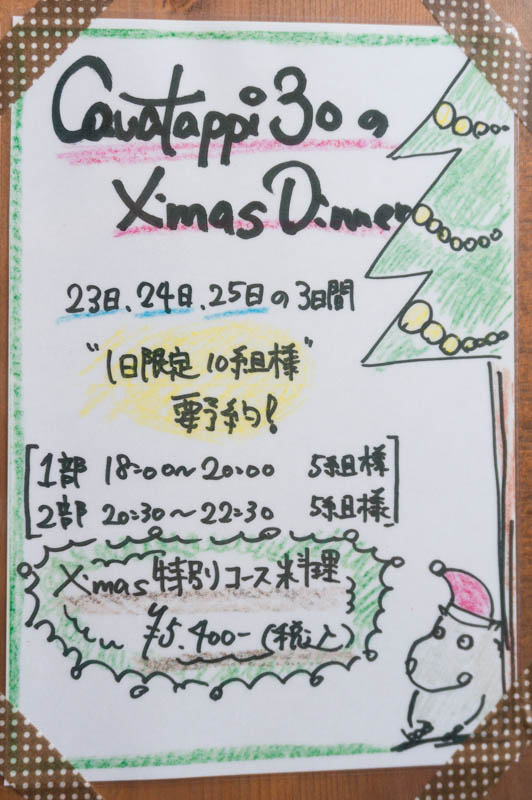 Cavatappi 30の
X'mas Dinner
23日、24日、25日の3日間
"1日限定10組様"
要予約!
1部 18:00〜20:00 5組様
2部 20:30〜22:30 5組様
X'mas特別コース料理
¥5,400-(税込)